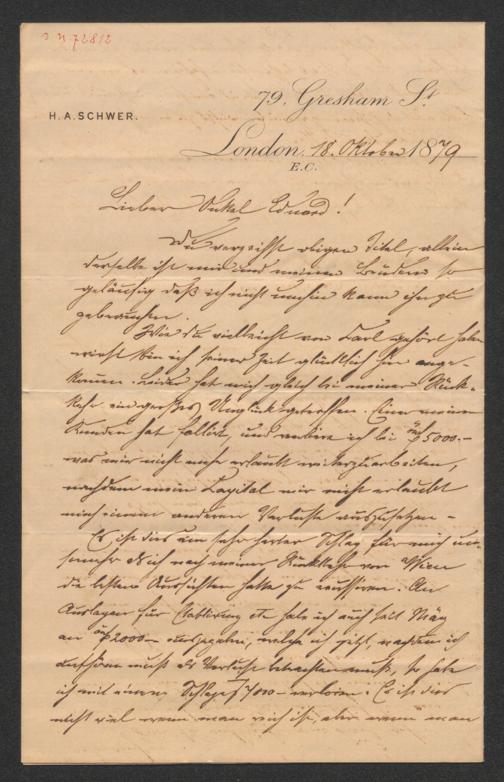 79, Gresham St
H. A. SCHWER.
London, 18. Oktober 1879
E.C.
Lieber Onkel Eduard!
Du verzeihst obigen Titel, allein
derselbe ist mir und meinen Brüdern so
geläufig daß ich nicht umhin kann ihn zu
gebrauchen.
Wie du vielleicht von Carl gehört haben
wirst bin ich seiner Zeit glücklich hier ange-
kommen. Leider hat mich gleich bei meiner Rück-
kehr ein großes Unglück getroffen. Einer meiner
Kunden hat fallirt, und verliere ich bei 5000.-
was mir nicht mehr erlaubt weiterzuarbeiten,
nachdem mein Capital mir nicht erlaubt
mich einem anderen Verluste auszusetzen -
Es ist dies ein sehr harter Schlag für mich um-
somehr als ich nach meiner Rückkehr von Wien
die besten Aussichten hatte zu reussiren. An
Auslagen für etc habe ich auch seit März
an 2000- ausgegeben, welche ich jetzt, nachdem ich
aufhören muß als Verlust betrachten muß, so habe
ich mit einem Schlage 7000- verloren. Es ist dies
nicht viel wenn man reich ist, aber wenn man